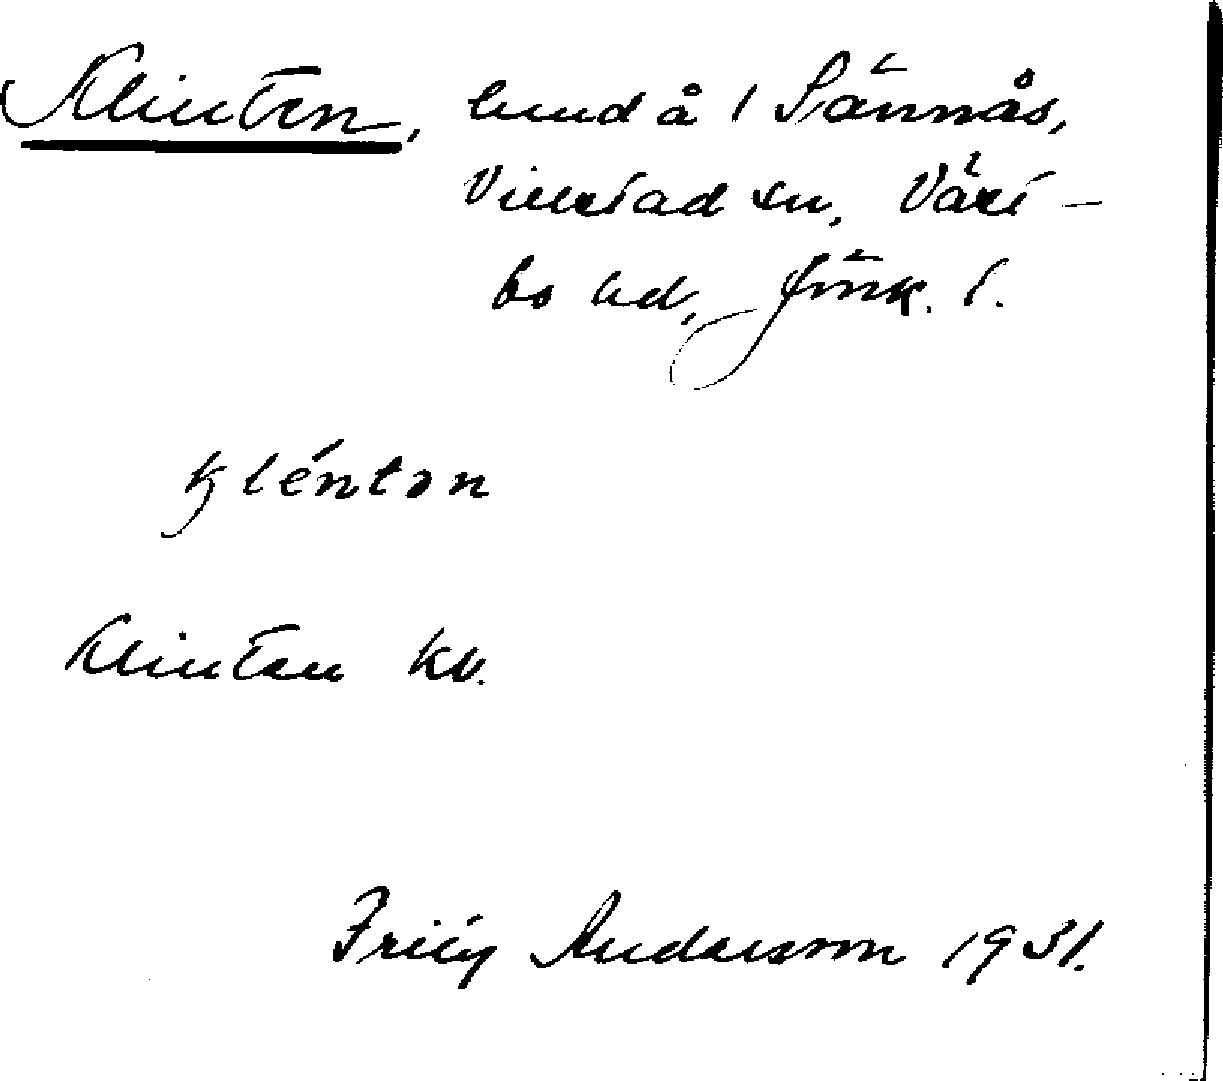 Klinten, lund å / Sännås,
Villstad sn, Väst-
bo hd, Jönk. l.
kléntən
Klinten kv.
Andersson 1931.